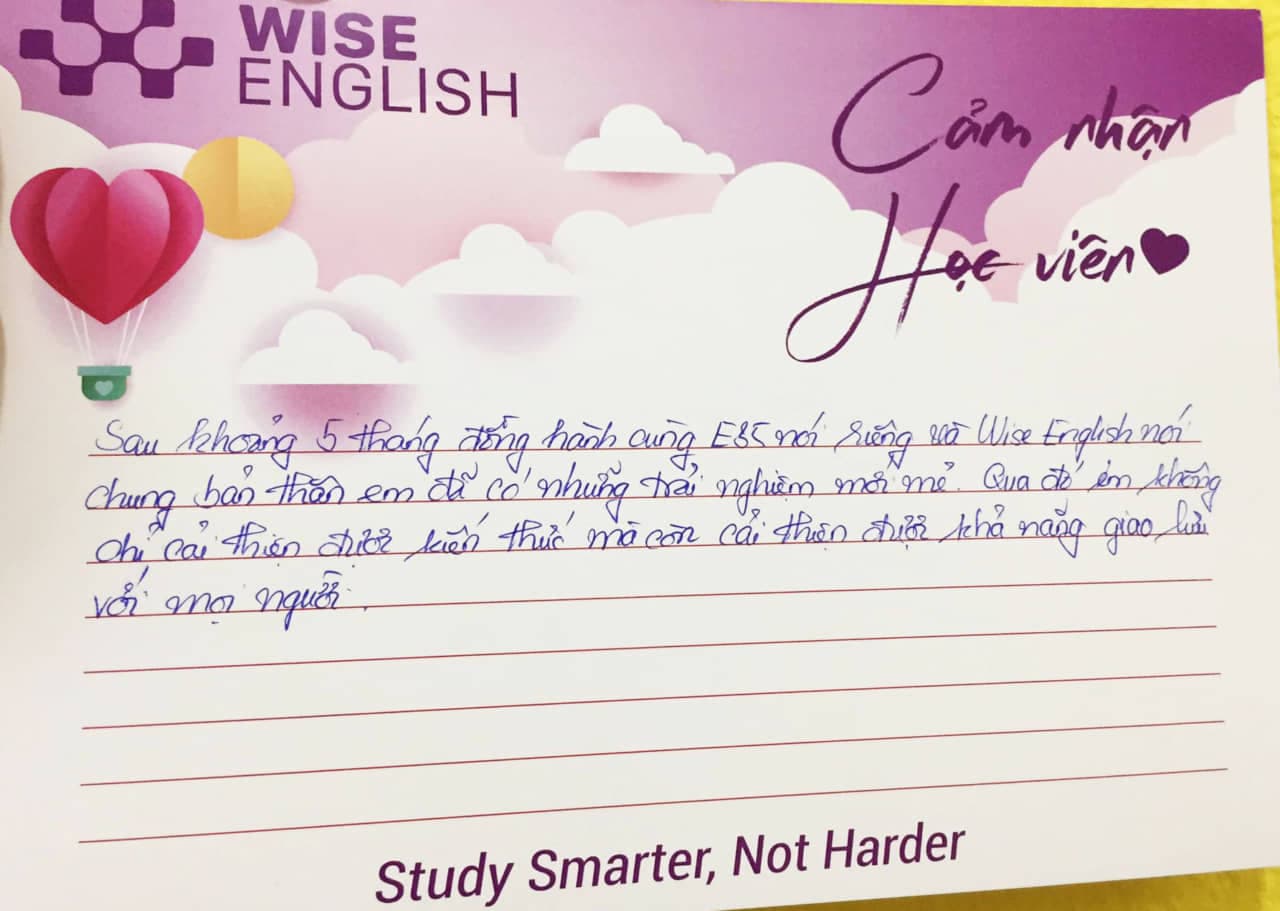 WISE
ENGLISH
Cảm nhận
Học viên
Sau khoảng 5 tháng đồng hành cùng nói riêng và Wise English nói
chung bản thân em đã có những trải nghiệm mới mẻ. Qua đó em không
chỉ cải thiện được kiến thức mà còn cải thiện được khả năng giao lưu
với mọi người.
Study Smarter, Not Harder